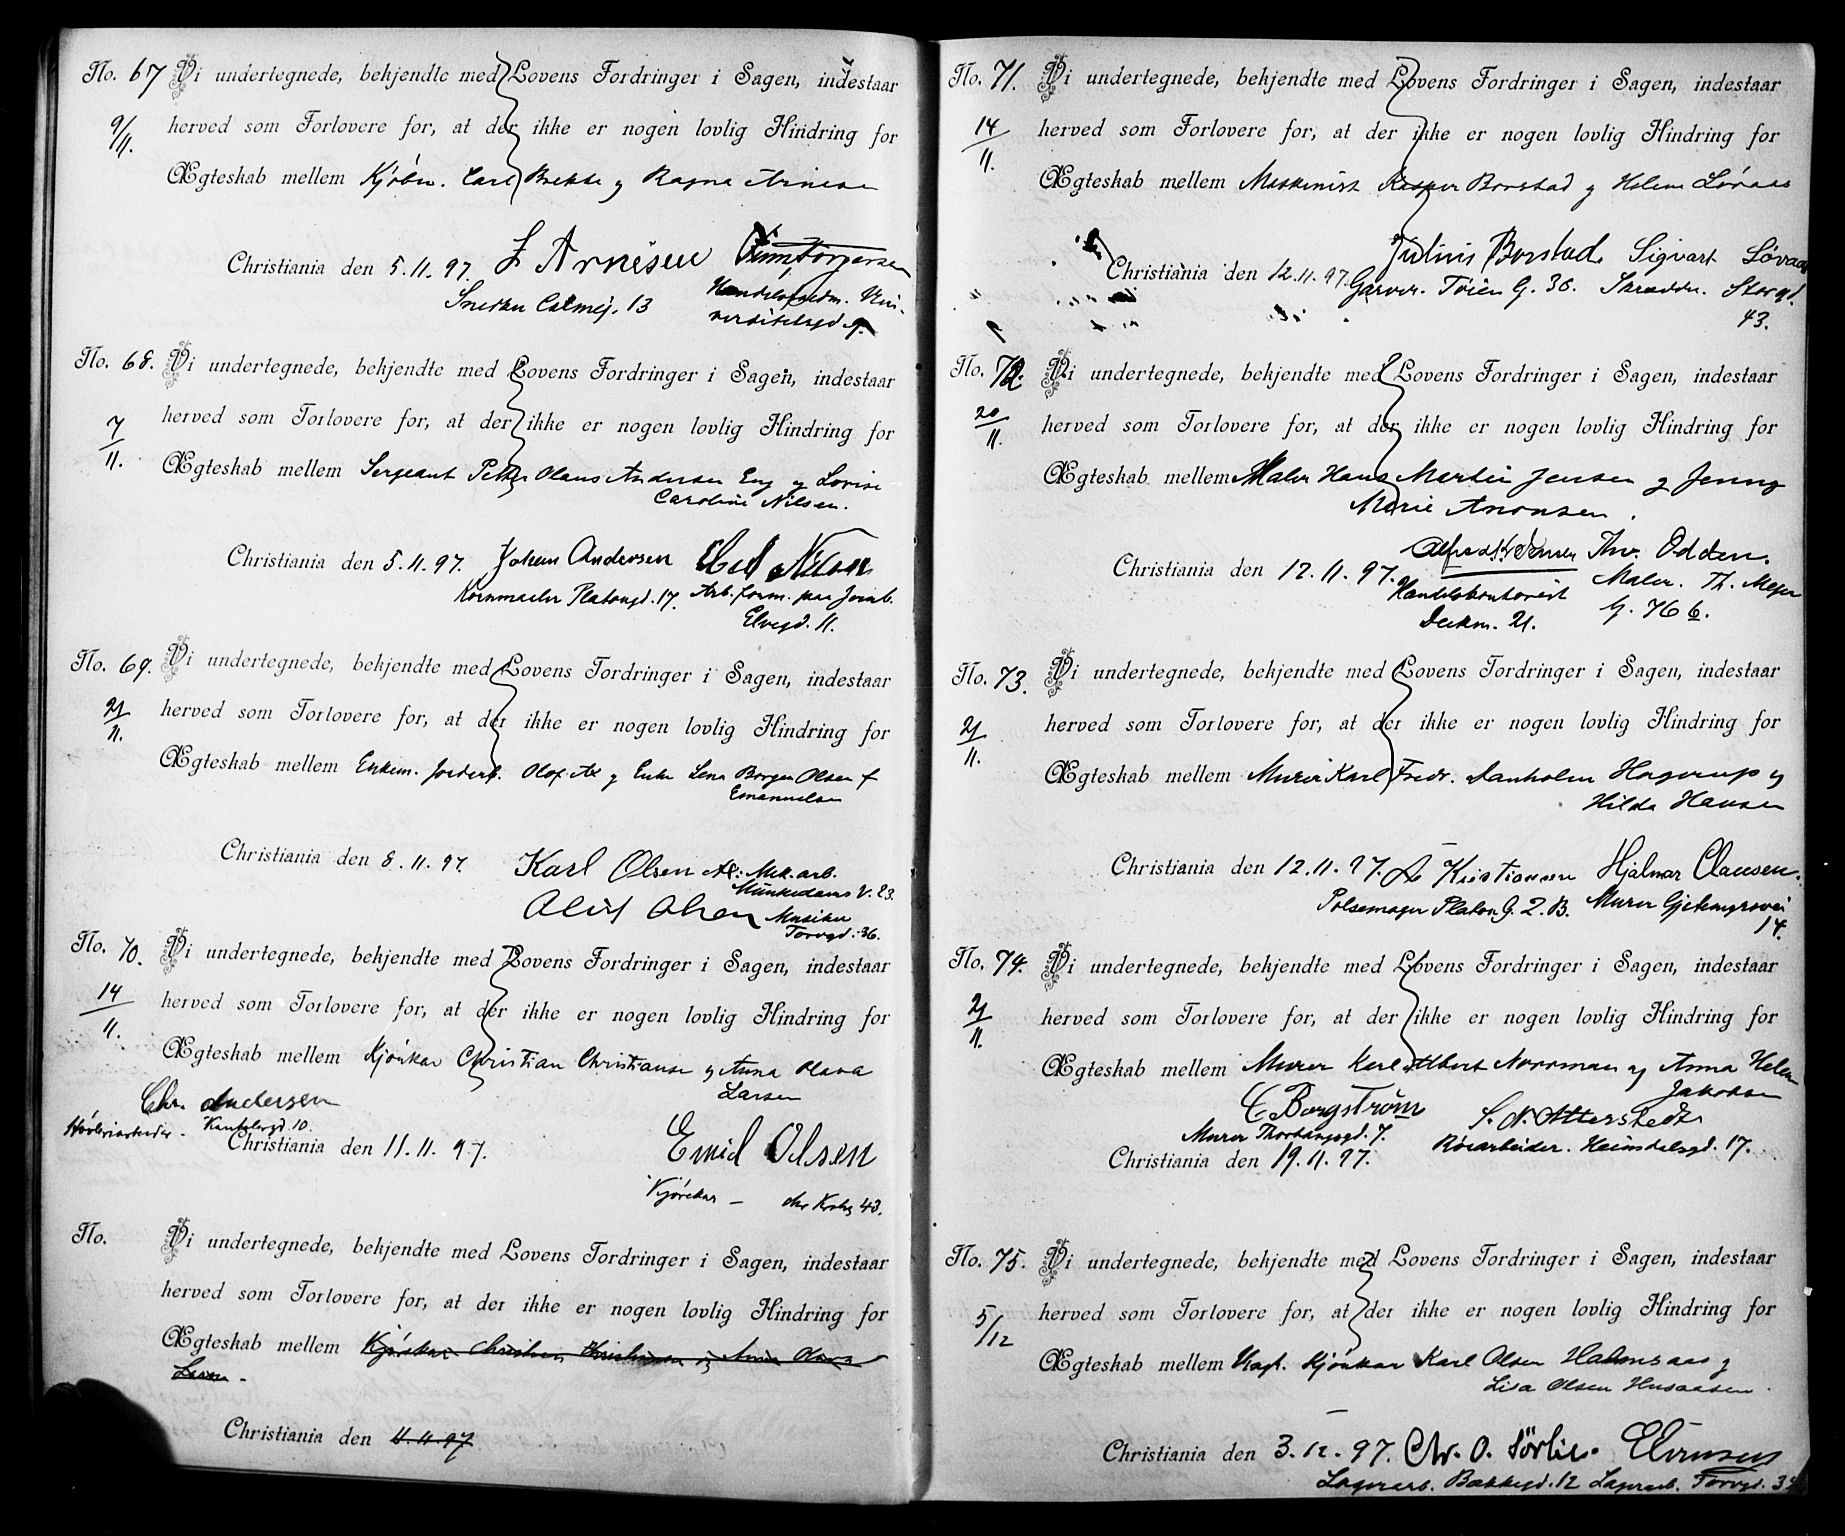 No. 67 Vi undertegnede, bekjendte med Lovens Fordringer i Sagen, indestaar
9/11. herved som Forlovere for, at der ikke er nogen lovlig Hindring for
Ægteskab mellem Kjøbm. Carl Brekke og Ragna Arnesen
Christiania den 5.11.97. Arnesen
Snedker 13
No. 68. Vi undertegnede, bekjendte med Lovens Fordringer i Sagen, indestaar
7/11. herved som Forlovere for, at der ikke er nogen lovlig Hindring for
Ægteskab mellem Sergeant Petter Olaus Andersen Eng og Lovise
Caroline Nilsen.
Christiania den 5.11.97. Johan Andersen Nilsen
Platougd. 17. Arb. form. paa Jernb.
Elvegd. 11.
No. 69. Vi undertegnede, bekjendte med Lovens Fordringer i Sagen, indestaar
21/11. herved som Forlovere for, at der ikke er nogen lovlig Hindring for
Ægteskab mellem Enkem. Jordarb. Olof Ax og Enke Lena Borgen Olsen f
Emanuelsen
Christiania den 8.11.97. Karl Olsen Mek. arb.
Munkedams V. 23.
Olsen Musiker
Torvgd. 36.
No. 70. Vi undertegnede, bekjendte med Lovens Fordringer i Sagen, indestaar
14/11. herved som Forlovere for, at der ikke er nogen lovlig Hindring for
Ægteskab mellem Kjørekar Christian Christiansen og Anna Olava
Larsen
Chr. Andersen
Høvleriarbeider - 10.
Christiania den 11.11.97. Emil Olsen
Kjørekar - Chr Krohg 43.
No. Vi undertegnede, bekjendte med Lovens Fordringer i Sagen, indestaar
herved som Forlovere for, at der ikke er nogen lovlig Hindring for
Ægteskab mellem Kjørekar Christian Christiansen og Anna Olava
Larsen.
Christiania den 11.11.97
No. 71. Vi undertegnede, bekjendte med Lovens Fordringer i Sagen, indestaar
14/11. herved som Forlovere for, at der ikke er nogen lovlig Hindring for
Ægteskab mellem Maskinist Kasper Borstad og Helene Løvaas
Julius Borstad. Sigvart Løvaas
Christiania den 12.11.97. Garver. Tøien G. 36. Skrædder. Storgd.
43.
No. 72. Vi undertegnede, bekjendte med Lovens Fordringer i Sagen, indestaar
20/11. herved som Forlovere for, at der ikke er nogen lovlig Hindring for
Ægteskab mellem Maler Hans Martin Jensen og Jenny
Marie Aronsen.
Alfred Jensen Thv. Odden.
Christiania den 12.11.97. Handelskontorist Maler. Th. Meyer
Deckm. 21. G. 76 b.
No. 73. Vi undertegnede, bekjendte med Lovens Fordringer i Sagen, indestaar
21/11. herved som Forlovere for, at der ikke er nogen lovlig Hindring for
Ægteskab mellem Murer Karl Fredr. Danholm Hagerup og
Hilda Hansen
Christiania den 12.11.97. Kristiansen Hjalmar Clausen.
Pølsemager Platou G. 2. B. Murer Gjetemyrsvei
14.
No. 74. Vi undertegnede, bekjendte med Lovens Fordringer i Sagen, indestaar
21/11. herved som Forlovere for, at der ikke er nogen lovlig Hindring for
Ægteskab mellem Murer Karl Albert Norrman og Anna Helen
Jakobsen
C Borgström S. N. Atterstedt
Murer 7. Rørarbeider. Heimdalsgd. 17.
Christiania den 19.11.97.
No. 75. Vi undertegnede, bekjendte med Lovens Fordringer i Sagen, indestaar
5/12 herved som Forlovere for, at der ikke er nogen lovlig Hindring for
Ægteskab mellem Ungk. Kjørekar Karl Olsen og
Lisa Olsen Husaasen.
Christiania den 3.12.97. Chr. O. Sørlie.
Lagerarb. Bakkegd. 12 Lagerarb. Torvgd.